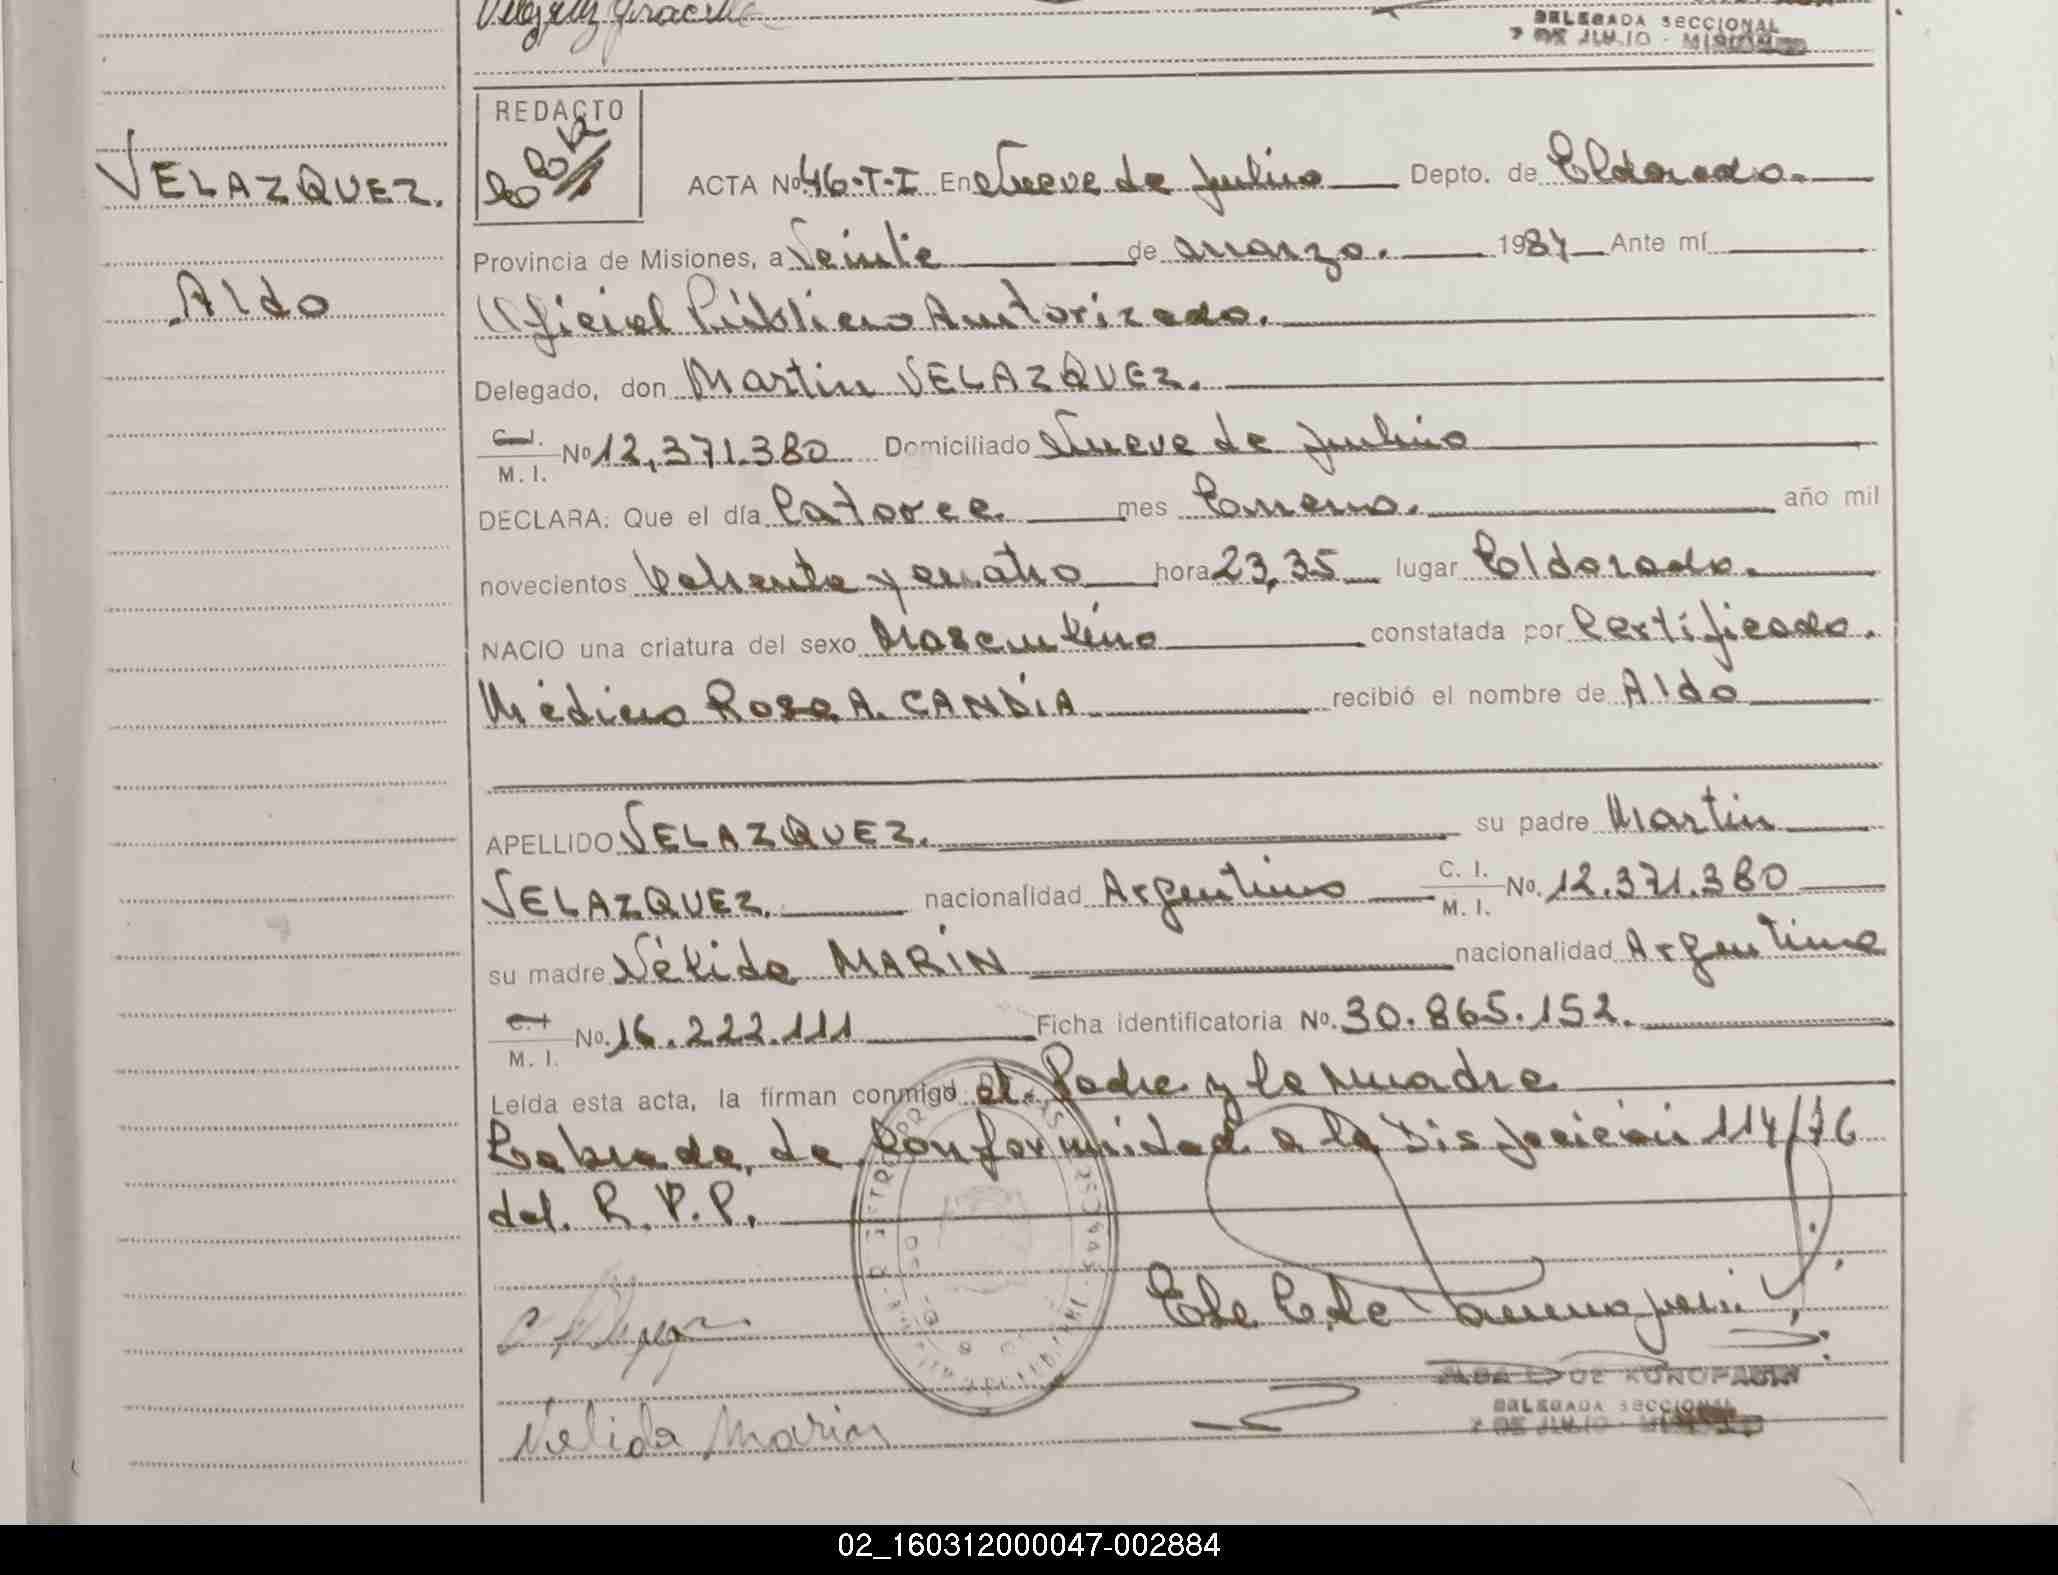 DELEGADA SECCIONAL
9 DE JULIO - MISIONES
VELAZQUEZ.
Aldo
REDACTO
ACTA Nº 46-T-I En Nueve de Julio Depto. de Eldorado.
Provincia de Misiones, a Veinte de marzo. 1984 Ante mí
Oficial Público Autorizado.
Delegado, don Martin VELAZQUEZ.
C.I. / M. I. Nº 12,371.380 Domiciliado Nueve de Julio
DECLARA: Que el día Catorce mes Enero. año mil
novecientos Ochenta y cuatro hora 23,35 lugar Eldorado.
NACIO una criatura del sexo Masculino constatada por Certificado.
Médico Rosa A. CANDIA recibió el nombre de Aldo
APELLIDO VELAZQUEZ. su padre Martin
VELAZQUEZ. nacionalidad Argentino C. I. / M. I. Nº. 12.371.380
su madre Nélida MARIN nacionalidad Argentina
C.I / M. I. Nº. 16.222.111 Ficha identificatoria Nº. 30.865.152.
Leída esta acta, la firman conmigo el Padre y la madre
Labrada, de Conformidad a la Disposición 114/76
del. R.P.P.
Nelida Marin
DELEGADA SECCIONAL
9 DE JULIO - MISIONES
02_160312000047-002884